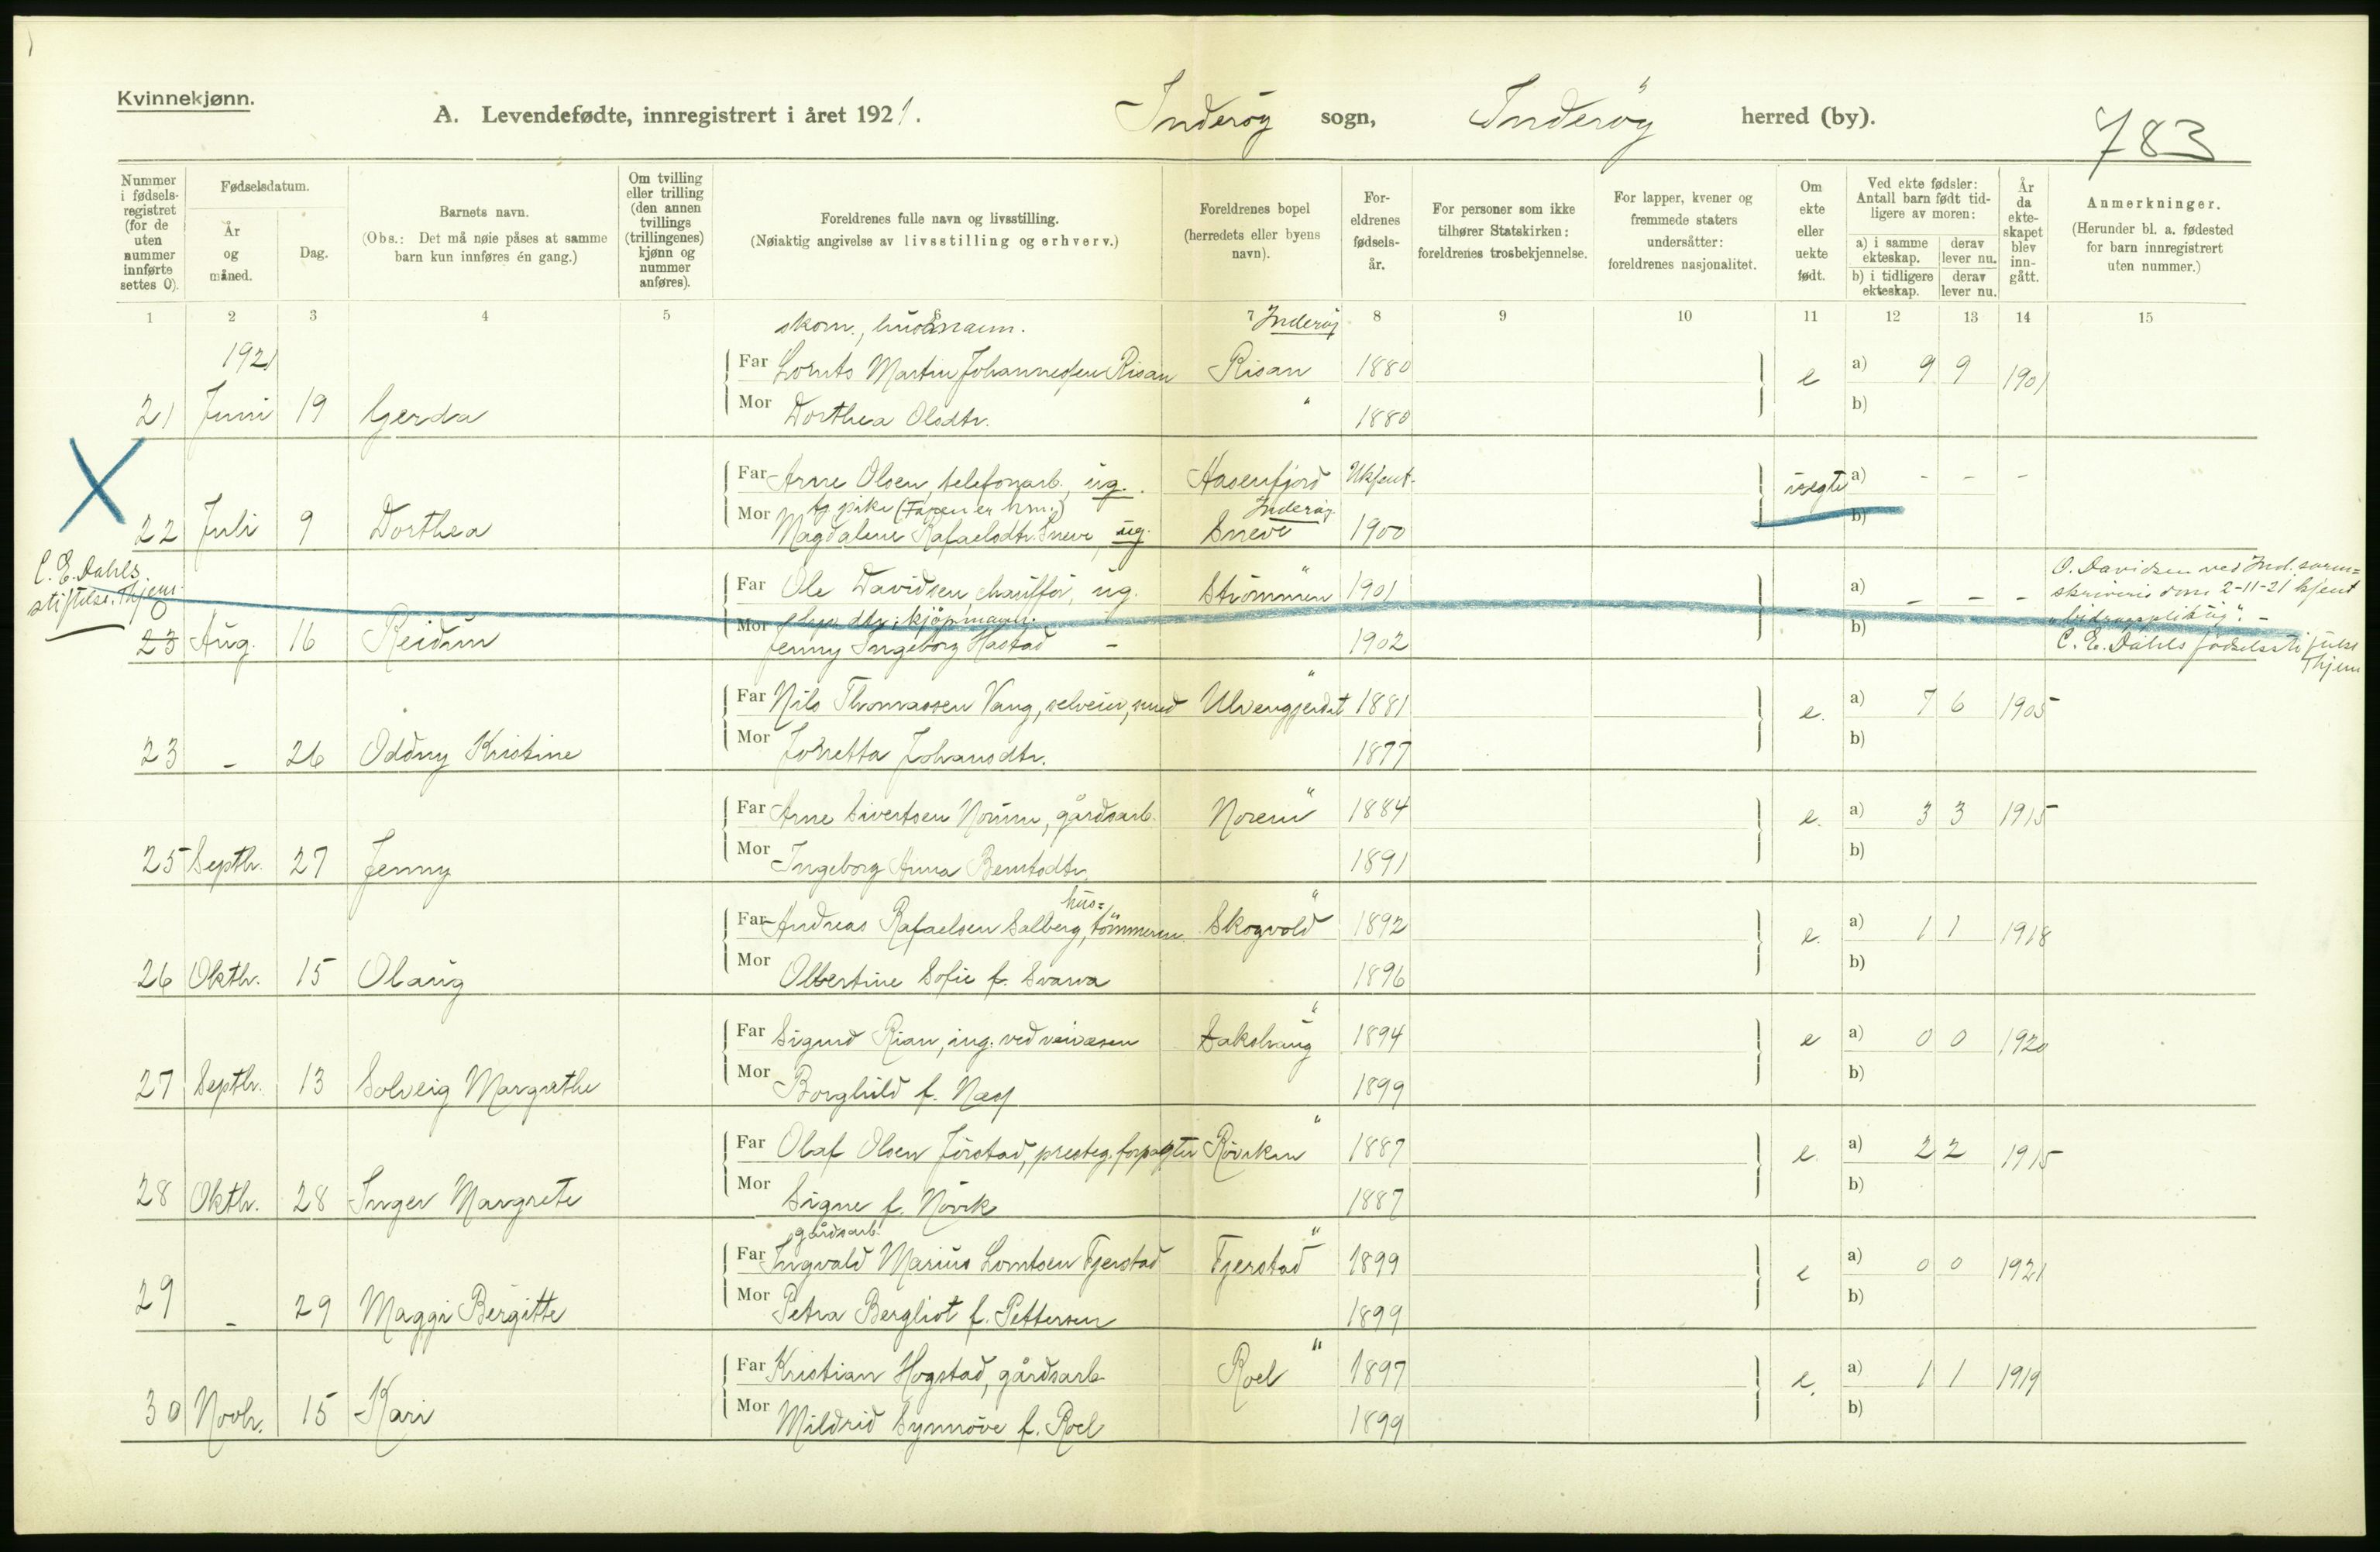 Kvinnekjønn.
A. Levendefødte, innregistrert i året 1921. Inderöy sogn, Inderöy herred (by).
783
Nummer i fødselsregistret (for de uten nummer innførte settes 0).
Fødselsdatum.
År og måned.
Dag.
Barnets navn.
(Obs.: Det må nøie påses at samme barn kun innføres én gang.)
Om tvilling eller trilling (den annen tvillings (trillingenes) kjønn og nummer anføres).
Foreldrenes fulle navn og livsstilling.
(Nøiaktig angivelse av livsstilling og erhverv.)
Foreldrenes bopel (herredets eller byens navn).
Foreldrenes fødselsår.
For personer som ikke tilhører Statskirken: foreldrenes trosbekjennelse.
For lapper, kvener og fremmede staters undersåtter: foreldrenes nasjonalitet.
Om ekte eller uekte født.
Ved ekte fødsler: Antall barn født tidligere av moren:
a) i samme ekteskap. derav lever nu.
b) i tidligere ekteskap. derav lever nu.
År da ekteskapet blev inngått.
Anmerkninger.
(Herunder bl. a. fødested for barn innregistrert uten nummer.)
1 2 3 4 5 6 7 8 9 10 11 12 13 14 15
skom., husmann. Inderöy
1921
Far Lornts Martin Johannessen Risan Risan 1880 e a) 9 9 1901
21 Juni 19 Gerda Mor Dorthea Olsdtr. " 1880 b)
Far Arne Olsen, telefonarb., ug. Hasenfjord Ukjent. uegte a) - - -
tj. pike (Faren er hm.) Inderöy
22 Juli 9 Dorthea Mor Magdalene Rafaelsdtr. Sneve, ug. Sneve 1900 b)
C. E. Dahls stiftelse, Thjem
Far Ole Davidsen, chaufför, ug. Strömmen " 1901 a) - - -
O. Davidsen ved Ind. sorenskriveris dom 2-11-21 kjent "bidragspliktig". -
0
23 Aug. 16 Reidun Mor kjöpmann.
Jenny Ingeborg Hastad - 1902 b)
C. E. Dahls födselsstiftelse Thjem
Far Nils Thomassen Vang, selveier, smed Ulvengjerdet " 1881 e. a) 7 6 1905
23 - 26 Oddny Kristine Mor Johansdtr. 1877 b)
Far Arne Sivertsen Norum, gårdsarb. " 1884 e. a) 3 3 1915
25 Septbr. 27 Jenny Mor Ingeborg Anna Berntsdtr. 1891 b)
hus=
Far Andreas Rafaelsen Salberg, tömmerm. Skogvold " 1892 e. a) 1 1 1918
26 Oktbr. 15 Olaug Mor Olbertine Sofie f. Svarva 1896 b)
Far Sigurd Rian, ing. ved veivæsen Sakshaug " 1894 e a) 0 0 1920
27 Septbr. 13 Solveig Margrethe Mor Borghild f. Næss 1899 b)
Far Olaf Olsen Jörstad, presteg. forpagter " 1887 e. a) 2 2 1915
28 Oktbr. 28 Inger Margrete Mor Signe f. 1887 b)
gårdsarb.
Far Ingvald Marius Lorntsen Tjerstad Tjerstad " 1899 e a) 0 0 1921
29 - 29 Maggi Bergitte Mor Petra Bergliot f. Pettersen 1899 b)
Far Kristian Hogstad, gårdsarb. Roel " 1897 e. a) 1 1 1919
30 Novbr. 15 Kari Mor Mildrid Synnöve f. Roel 1899 b)